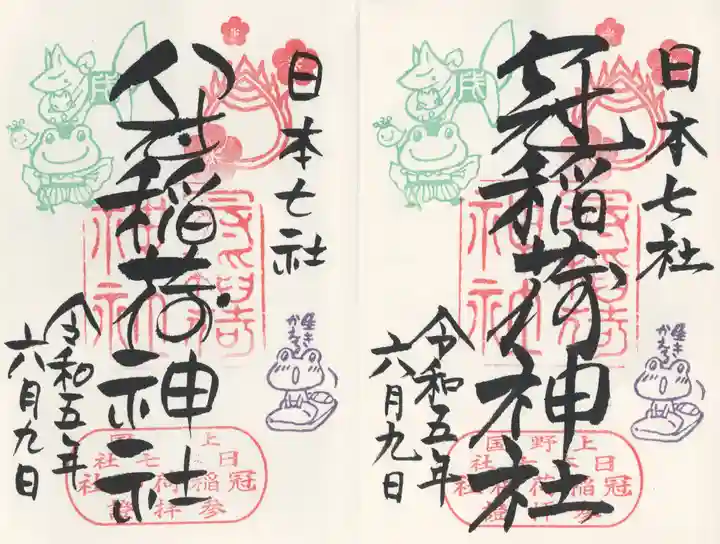 日本七社
冠稲荷神社
令和五年
六月九日
生き
かえる
上野国
日本七社
冠稲荷神社
参拝證
日本七社
稲荷神社
令和五年
六月九日
生き
かえる